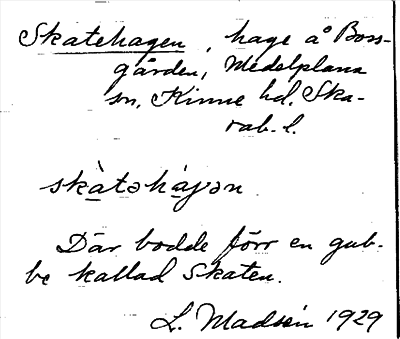 Skatehagen, hage å Boss-
gården, Medelplana
sn, Kinne hd, Ska-
rab. l.
skàtəháɣən
Där bodde förr en gub-
be kallad Skaten.
L. Madsén 1929